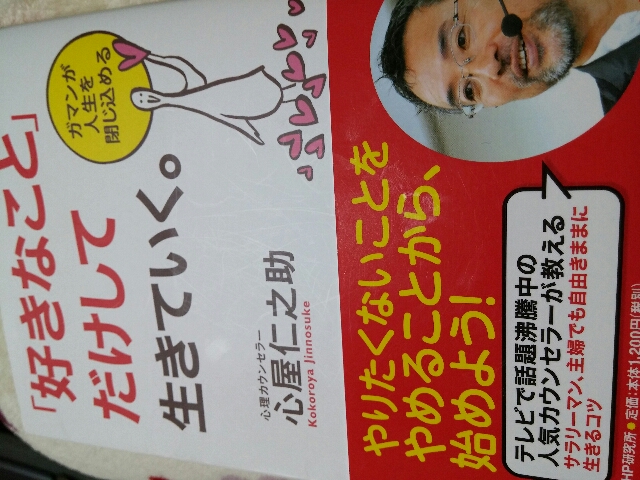 ガマンが
人生を
閉じ込める
「好きなこと」
だけして
生きていく。
心理カウンセラー
心屋仁之助
Kokoroya Jinnosuke
やりたくないことを
やめることから、
始めよう!
テレビで話題沸騰中の
人気カウンセラーが教える
サラリーマン、主婦でも自由きままに
生きるコツ
HP研究所 ●定価:本体1,200円(税別)